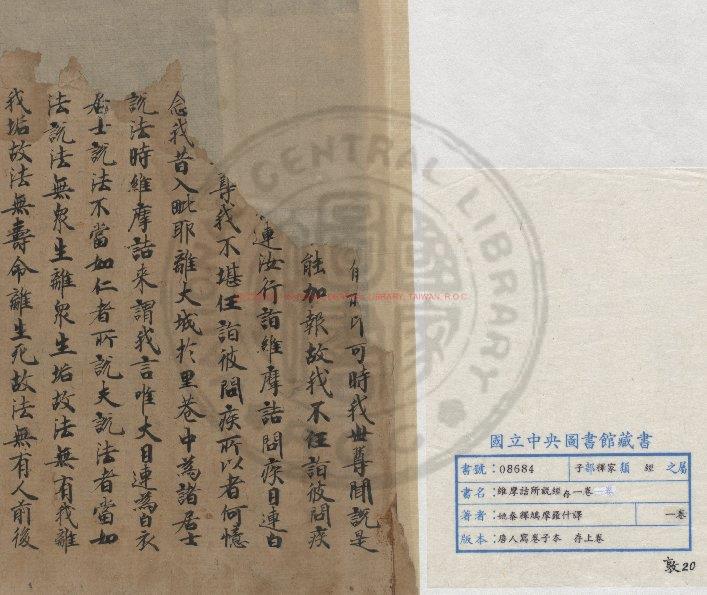 所印可時我世尊聞說是
能加報故我不任詣彼問疾
連汝行詣維摩詰問疾目連白
尊我不堪任詣彼問疾所以者何憶
念我昔入毗耶離大城於里巷中為諸居士
說法時維摩詰来謂我言唯大目連為白衣
居士說法不當如仁者所說夫說法者當如
法說法無衆生離衆生垢故法無有我離
我垢故法無壽命離生死故法無有人前後
CENTRAL LIBRARY
CENTRAL LIBRARY, TAIWAN, R.O.C
國立中央圖書館藏書
書號：08684 子部釋家類 經 之屬
書名：維摩詰所說經存一卷
著者：姚秦釋鳩摩羅什譯 一卷
版本：唐人寫卷子本 存上卷
敦20